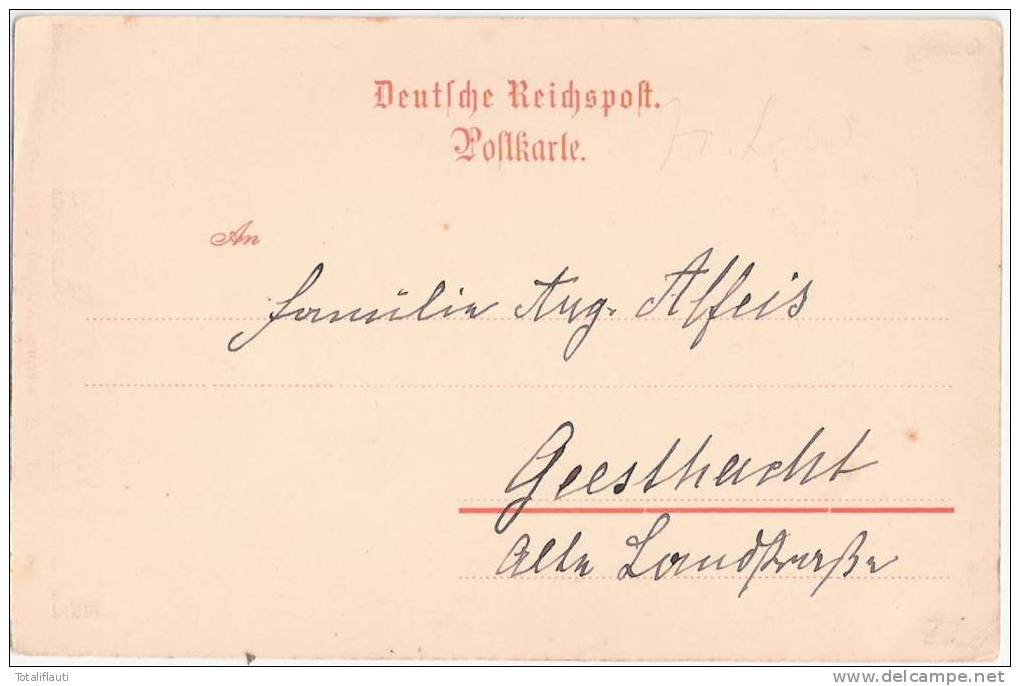 Deutsche Reichspost.
Postkarte.
An
Familie Aug. Alfeis
Geesthacht
Alte Landstraße
Totaliflauti
delcampe.net